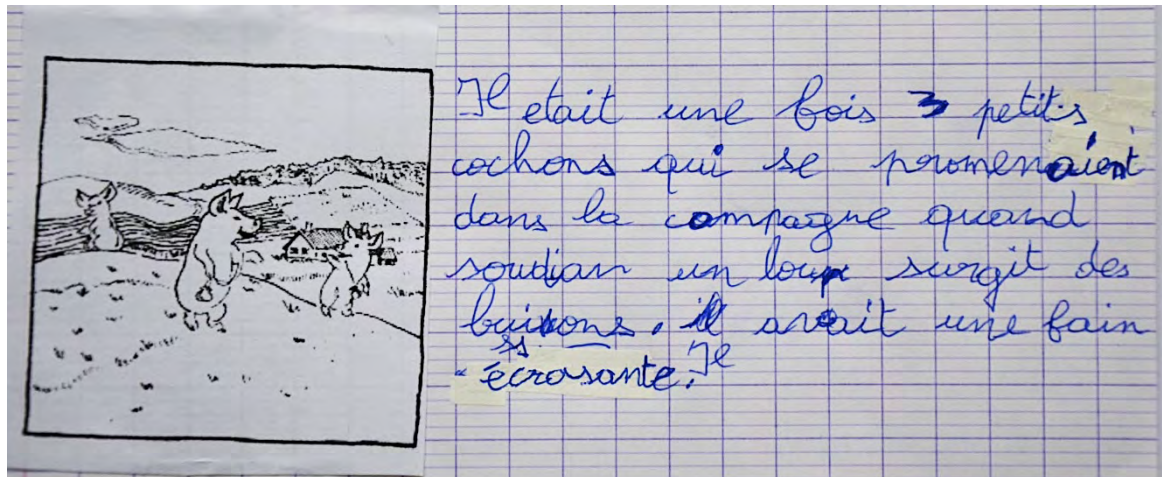 Il etait une fois 3 petits
cochons qui se promenaient
dans la campagne quand
soudian un loup surgit des
buissons. il avait une fain
écrosante. Il